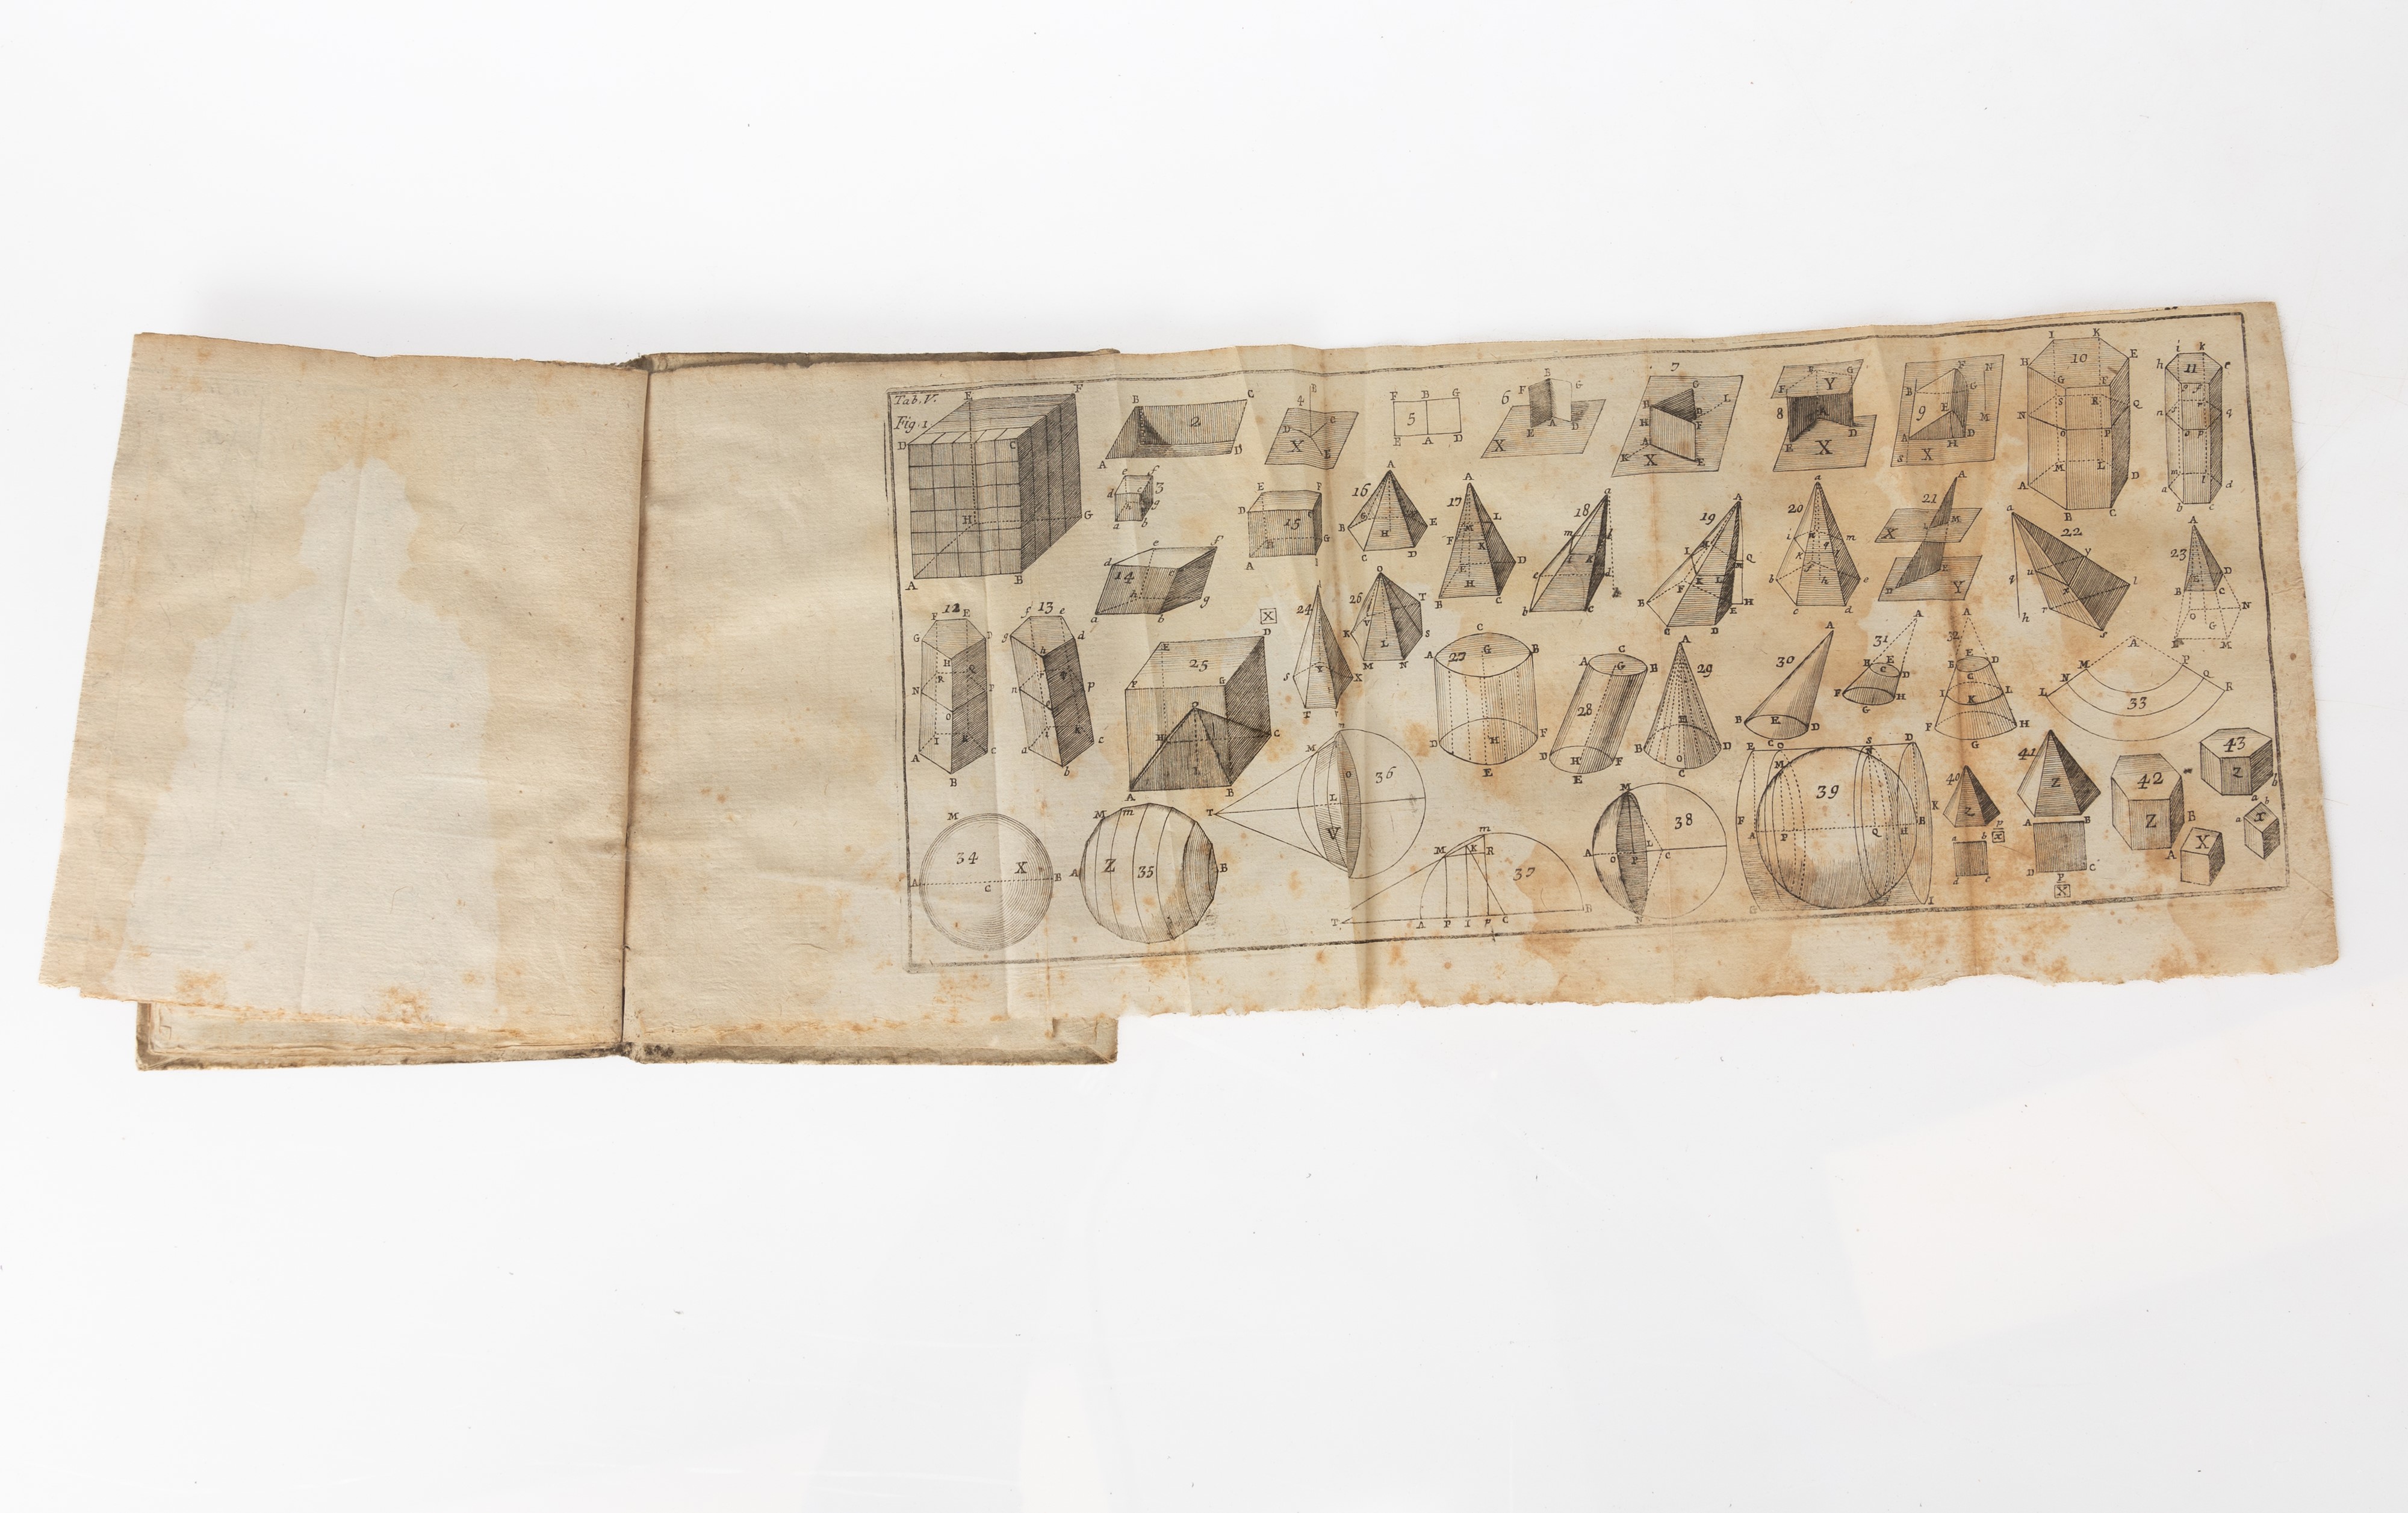 Tab. V.
Fig. 1
E F
D C
H G
A B
B C
2
A D
e f
d c 3
h g
a b
B
4
D C
X E
F B G
5
E A D
6 F B G
E A D
X
7
G
B L
H D F
A
K X E
E G
F Y
8
E D
X
F N
B G
9 E M
A H D
S X
I K
H 10 E
G F
N S R Q
O P
M L
A D
B C
i k
h 11 e
n q
o p
m l
a d
b c
12
F E
G D
H
R Q
N P
O
I K
A C
B
13
f e
g d
h
n p
a c
b
e f
d 14 c
h g
a b
E F
D 15 C
H G
A
A
16
B E
H
C D
A
17 L
M
F K
E D
H
B C
a
18
m l
i k
e d
b c
A
19
I Q
F K L
B H
C D E
a
20
i m
b e
h
c d
A
21
X L M
E
D Y
a
22
y
q u x l
h r
s
A
23
D
B E C
N
O G
M
X
24
Y
S X
T
E D
25
F G
O
H C
I
A B
O
26 T
V
K S
L
M N
C
A 27 G B
D H F
E
C
A G B
28
D H F
E
A
29
B D
O
C
A
30
B E D
C
A
31
B E
C D
F H
G
A
32
E
B D
C
I K L
F H
G
A
M P
N Q
L R
33
M
34 X
A C B
M m
Z 35
A B
M
O 36
L
T V
m
M K R
37
T A P I P C B
M
38
L
A O P C
N
E O S D
M
39
F K
A P Q H B
G I
40
Z
a b
d c
p
x
41
Z
A B
D C
P
X
42
Z
B
X
A
43
Z
b
a b
x
a